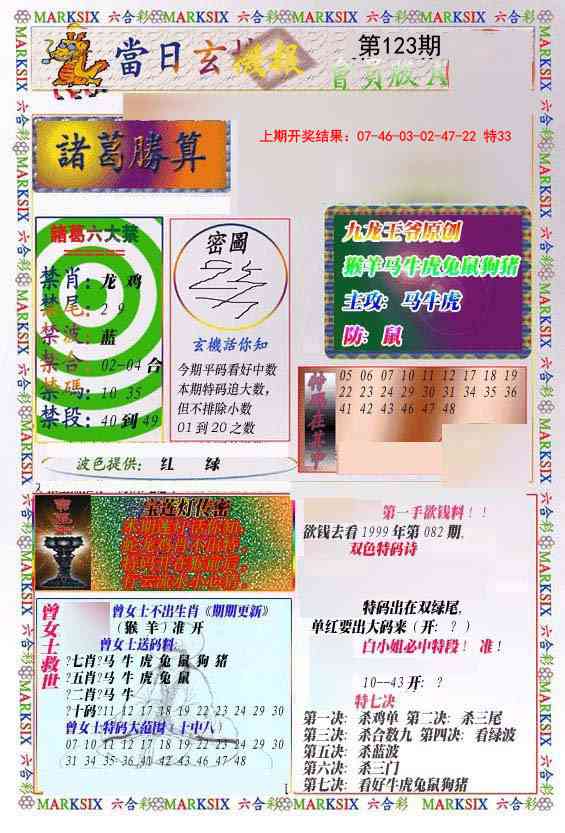 MARKSIX 六合彩 MARKSIX 六合彩 MARKSIX 六合彩 MARKSIX 六合彩 MARKSIX 六合彩
當日玄機報
第123期
上期开奖结果：07-46-03-02-47-22 特33
諸葛勝算
諸葛六大禁
禁肖：龙 鸡
禁尾：2 9
禁波：蓝
禁合：02-04合
禁碼：10 35
禁段：40到49
密圖
玄機活你知
今期平码看好中数
本期特码追大数，
但不排除小数
01到20之数
九龙王爷原创
猴羊马牛虎兔鼠狗猪
主攻：马牛虎
防：鼠
05 06 07 10 11 12 17 18 19
22 23 24 29 30 31 34 35 36
41 42 43 46 47 48
波色提供： 红 绿
宝莲灯传密
曾女士救世
曾女士不出生肖《期期更新》
（猴 羊）准 开
曾女士送码料
?七肖?马 牛 虎 兔 鼠 狗 猪
?五肖?马 牛 虎 兔 鼠
?二肖?马 牛
?十码?11 12 17 18 19 22 23 24 29 30
曾女士特码大范围（十中八）
07 10 11 12 17 18 19 22 23 24 29 30
31 34 35 36 41 42 43 46 47 48
第一手欲钱料！！
欲钱去看1999年第082期，
双色特码诗
特码出在双绿尾，
单红要出大码来（开：？）
白小姐必中特段！ 准！
10--43开：？
特七决
第一决：杀鸡单 第二决：杀三尾
第三决：杀合数九 第四决：看绿波
第五决：杀蓝波
第六决：杀三门
第七决：看好牛虎兔鼠狗猪
MARKSIX 六合彩 MARKSIX 六合彩 MARKSIX 六合彩 MARKSIX 六合彩 MARKSIX 六合彩